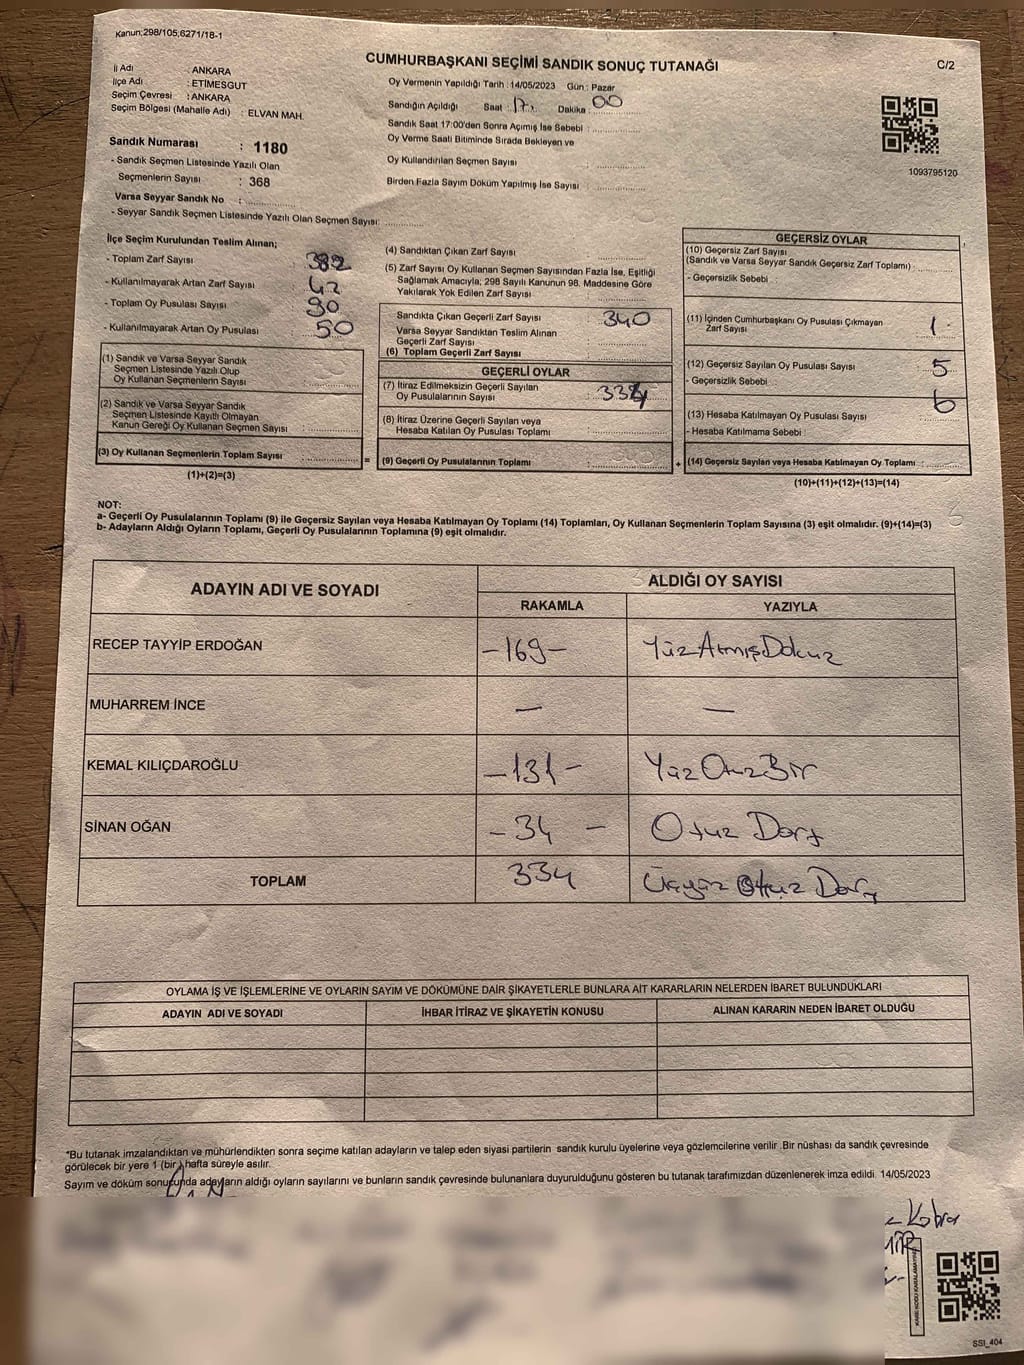 Kanun:298/105,6271/18-1
CUMHURBAŞKANI SEÇİMİ SANDIK SONUÇ TUTANAĞI
C/2
İl Adı : ANKARA
İlçe Adı : ETİMESGUT
Seçim Çevresi : ANKARA
Seçim Bölgesi (Mahalle Adı) : ELVAN MAH.
Oy Vermenin Yapıldığı Tarih : 14/05/2023 Gün : Pazar
Sandığın Açıldığı Saat 17 Dakika 00
Sandık Saat 17:00'den Sonra Açımış İse Sebebi :
Oy Verme Saati Bitiminde Sırada Bekleyen ve
Oy Kullandırılan Seçmen Sayısı
Birden Fazla Sayım Döküm Yapılmış İse Sayısı
1093795120
Sandık Numarası : 1180
- Sandık Seçmen Listesinde Yazılı Olan
Seçmenlerin Sayısı : 368
Varsa Seyyar Sandık No :
- Seyyar Sandık Seçmen Listesinde Yazılı Olan Seçmen Sayısı:
İlçe Seçim Kurulundan Teslim Alınan;
- Toplam Zarf Sayısı 382
- Kullanılmayarak Artan Zarf Sayısı 42
- Toplam Oy Pusulası Sayısı 90
- Kullanılmayarak Artan Oy Pusulası 50
(1) Sandık ve Varsa Seyyar Sandık
Seçmen Listesinde Yazılı Olup
Oy Kullanan Seçmenlerin Sayısı
(2) Sandık ve Varsa Seyyar Sandık
Seçmen Listesinde Kayıtlı Olmayan
Kanun Gereği Oy Kullanan Seçmen Sayısı :
(3) Oy Kullanan Seçmenlerin Toplam Sayısı
(1)+(2)=(3)
=
(4) Sandıktan Çıkan Zarf Sayısı
(5) Zarf Sayısı Oy Kullanan Seçmen Sayısından Fazla İse, Eşitliği
Sağlamak Amacıyla; 298 Sayılı Kanunun 98. Maddesine Göre
Yakılarak Yok Edilen Zarf Sayısı
Sandıkta Çıkan Geçerli Zarf Sayısı 340
Varsa Seyyar Sandıktan Teslim Alınan
Geçerli Zarf Sayısı
(6) Toplam Geçerli Zarf Sayısı
GEÇERLİ OYLAR
(7) İtiraz Edilmeksizin Geçerli Sayılan
Oy Pusulalarının Sayısı 334
(8) İtiraz Üzerine Geçerli Sayılan veya
Hesaba Katılan Oy Pusulası Toplamı
(9) Geçerli Oy Pusulalarının Toplamı
+
GEÇERSİZ OYLAR
(10) Geçersiz Zarf Sayısı
(Sandık ve Varsa Seyyar Sandık Geçersiz Zarf Toplamı) :
- Geçersizlik Sebebi
(11) İçinden Cumhurbaşkanı Oy Pusulası Çıkmayan
Zarf Sayısı 1
(12) Geçersiz Sayılan Oy Pusulası Sayısı 5
- Geçersizlik Sebebi
(13) Hesaba Katılmayan Oy Pusulası Sayısı 6
- Hesaba Katılmama Sebebi
(14) Geçersiz Sayılan veya Hesaba Katılmayan Oy Toplamı :
(10)+(11)+(12)+(13)=(14)
NOT:
a- Geçerli Oy Pusulalarının Toplamı (9) ile Geçersiz Sayılan veya Hesaba Katılmayan Oy Toplamı (14) Toplamları, Oy Kullanan Seçmenlerin Toplam Sayısına (3) eşit olmalıdır. (9)+(14)=(3)
b- Adayların Aldığı Oyların Toplamı, Geçerli Oy Pusulalarının Toplamına (9) eşit olmalıdır.
ADAYIN ADI VE SOYADI
ALDIĞI OY SAYISI
RAKAMLA YAZIYLA
RECEP TAYYİP ERDOĞAN -169- YüzAtmışDokuz
MUHARREM İNCE — —
KEMAL KILIÇDAROĞLU -131- Yüz Otuz Bir
SİNAN OĞAN -34 - Otuz Dört
TOPLAM 334 Üçyüz Otuz Dört
OYLAMA İŞ VE İŞLEMLERİNE VE OYLARIN SAYIM VE DÖKÜMÜNE DAİR ŞİKAYETLERLE BUNLARA AİT KARARLARIN NELERDEN İBARET BULUNDUKLARI
ADAYIN ADI VE SOYADI İHBAR İTİRAZ VE ŞİKAYETİN KONUSU ALINAN KARARIN NEDEN İBARET OLDUĞU
*Bu tutanak imzalandıktan ve mühürlendikten sonra seçime katılan adayların ve talep eden siyasi partilerin sandık kurulu üyelerine veya gözlemcilerine verilir .Bir nüshası da sandık çevresinde
görülecek bir yere 1 (bir ) hafta süreyle asılır.
Sayım ve döküm sonucunda adayların aldığı oyların sayılarını ve bunların sandık çevresinde bulunanlara duyurulduğunu gösteren bu tutanak tarafımızdan düzenlenerek imza edildi. 14/05/2023
Kübra
SSİ_404